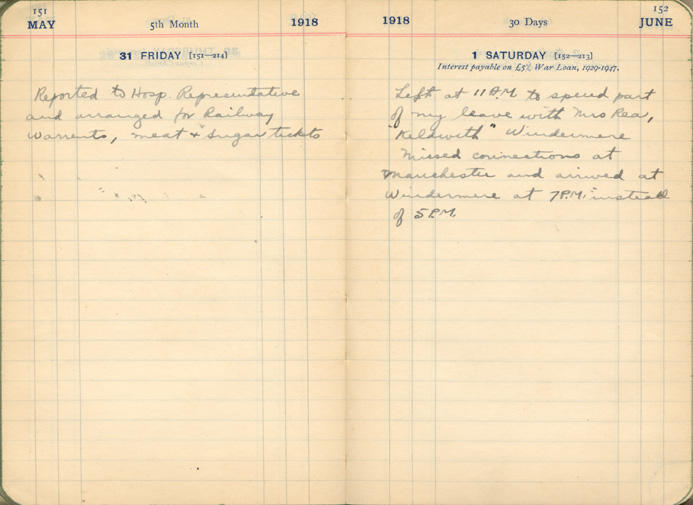 151
MAY
5th Month
1918
31 FRIDAY [151—214]
Reported to Hosp. Representative
and arranged for Railway
Warrents, meat + sugar tickets
152
1918
30 Days
JUNE
1 SATURDAY [152—213]
Interest payable on £5% War Loan, 1929-1947.
Left at 11 A.M. to spend part
of my leave with Mrs Rea,
"Kelswith" Windermere
Missed connections at
Manchester and arrived at
Windermere at 7 P.M. instead
of 5 P.M.